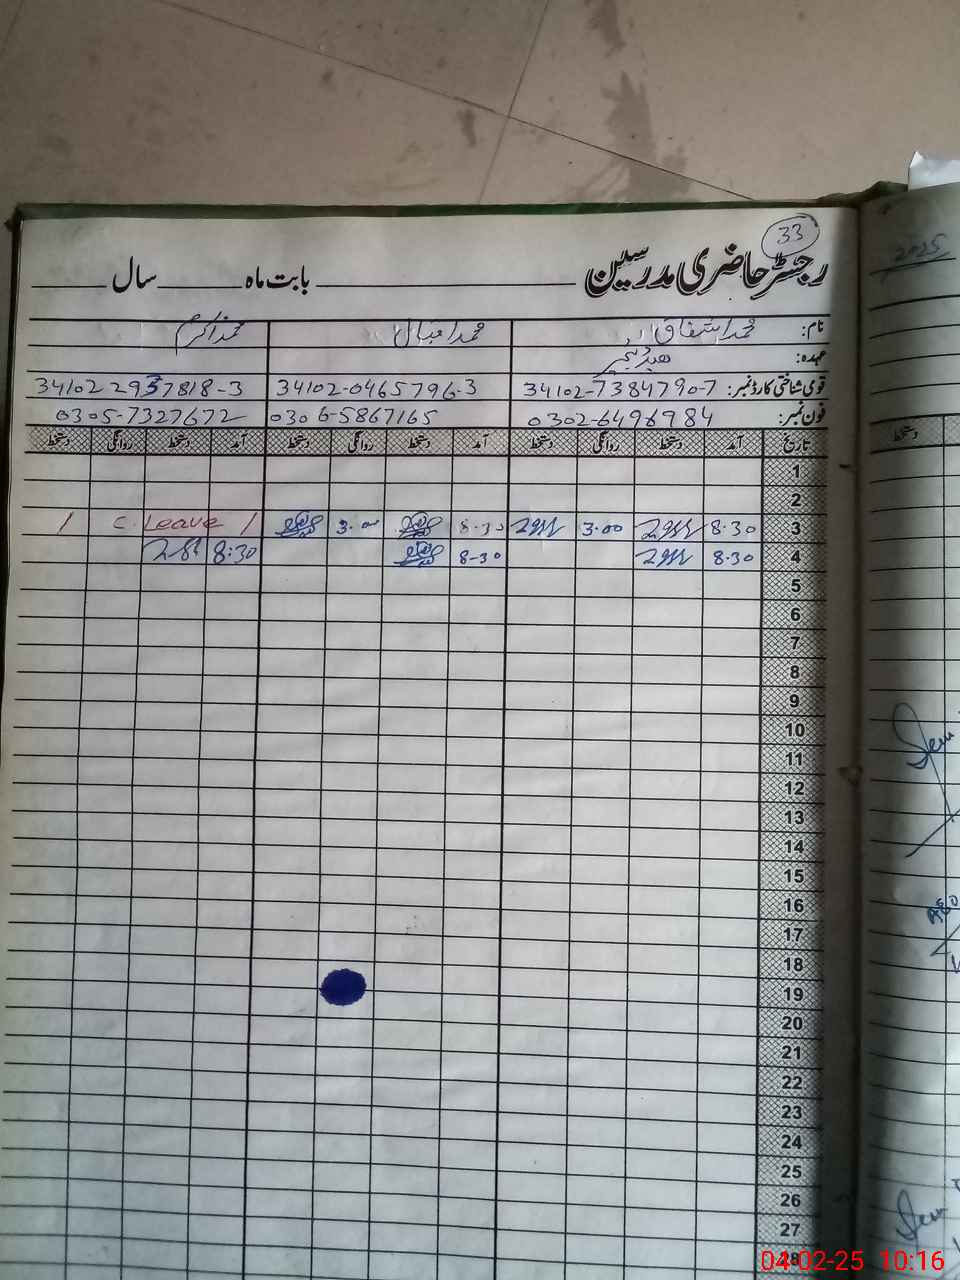 33
رجسٹر حاضری مدرسین ______ بابت ماہ ______ سال ______
نام: محمد اشفاق محمد اقبال محمد اکرم
عہدہ: ہیڈ ٹیچر
قومی شناختی کارڈ نمبر: 34102-7384790-7 34102-0465796-3 34102-2937818-3
فون نمبر: 0302-6496984 0306-5867165 0305-7327672
تاریخ آمد دستخط روانگی دستخط آمد دستخط روانگی دستخط آمد دستخط روانگی دستخط
1
2
3 8.30 3.00 8.30 3.00 / C. Leave /
4 8.30 8-30 8:30
5
6
7
8
9
10
11
12
13
14
15
16
17
18
19
20
21
22
23
24
25
26
27
28
2025
دستخط
04-02-25 10:16